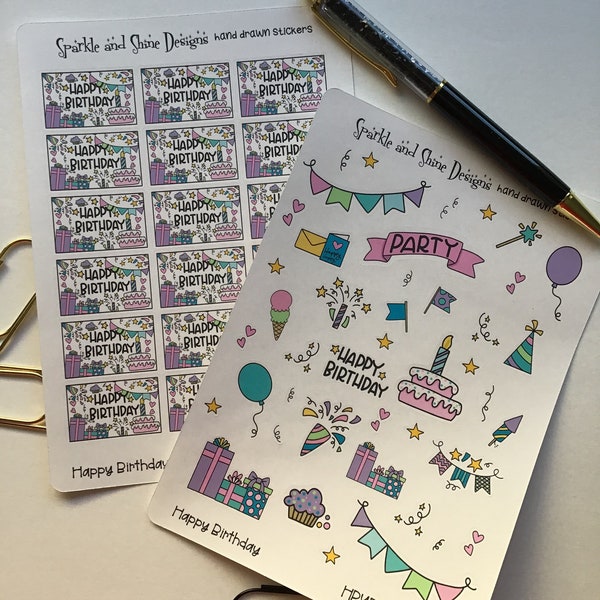 Sparkle and Shine Designs hand drawn stickers
HAPPY BIRTHDAY
HAPPY BIRTHDAY
HAPPY BIRTHDAY
HAPPY BIRTHDAY
HAPPY BIRTHDAY
HAPPY BIRTHDAY
HAPPY BIRTHDAY
HAPPY BIRTHDAY
HAPPY BIRTHDAY
HAPPY BIRTHDAY
HAPPY BIRTHDAY
HAPPY BIRTHDAY
Happy Birthday
Sparkle and Shine Designs hand drawn
PARTY
HAPPY
BIRTHDAY
Happy Birthday